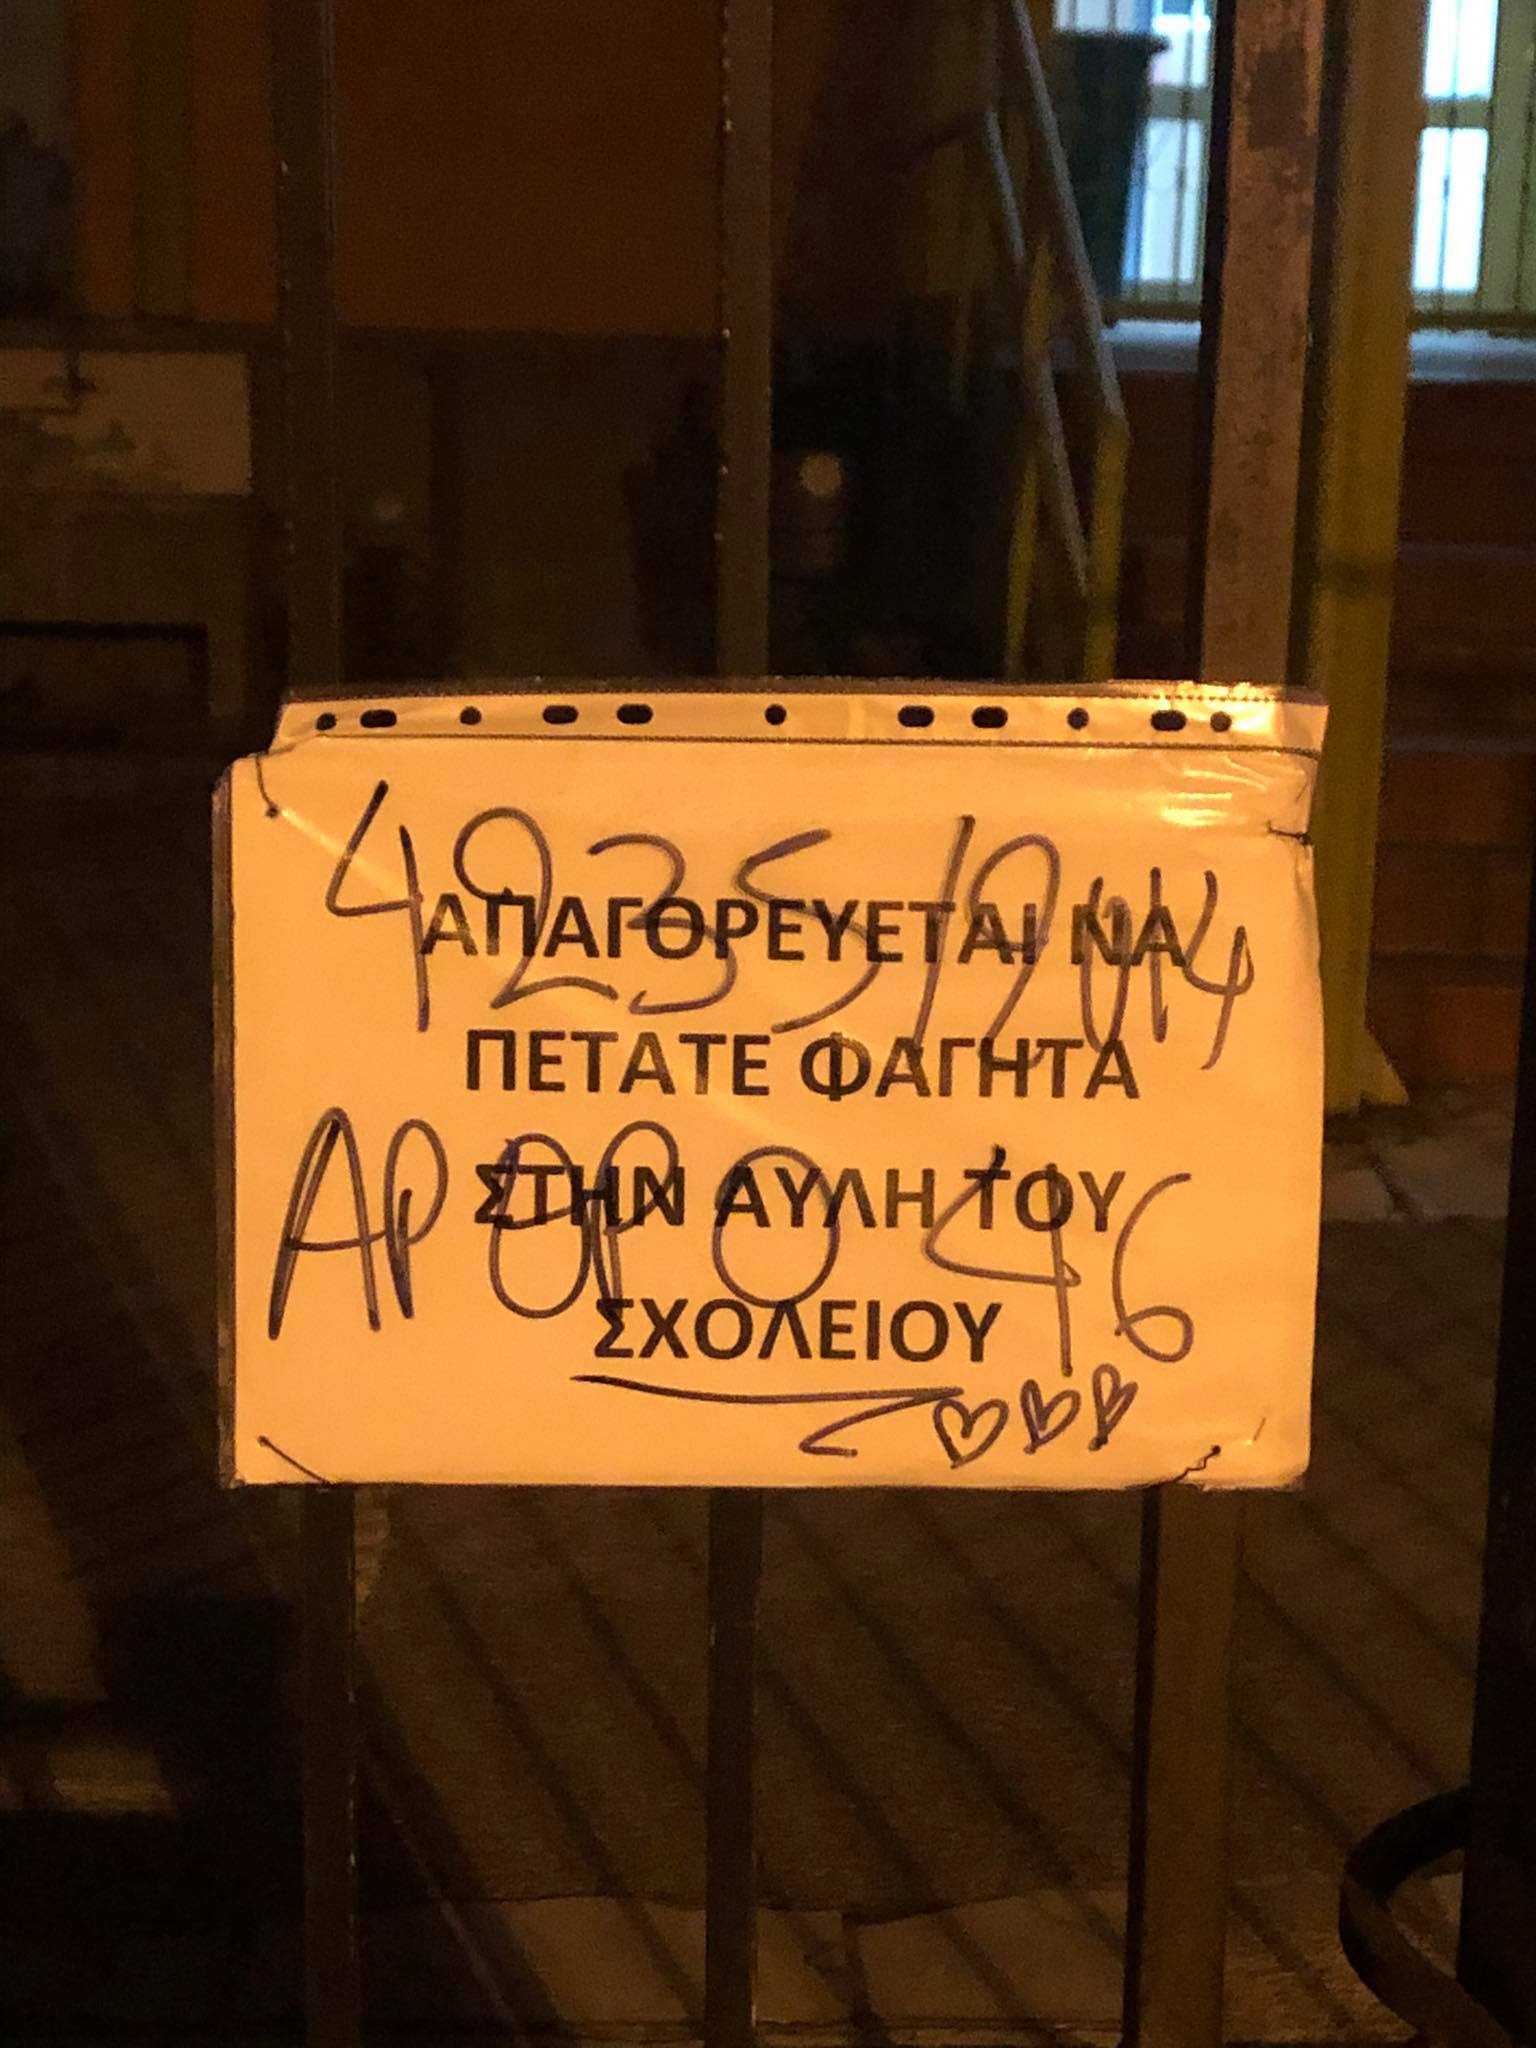 4235/2014
ΑΠΑΓΟΡΕΥΕΤΑΙ ΝΑ
ΠΕΤΑΤΕ ΦΑΓΗΤΑ
ΑΡΘΡΟ 46
ΣΤΗΝ ΑΥΛΗ ΤΟΥ
ΣΧΟΛΕΙΟΥ